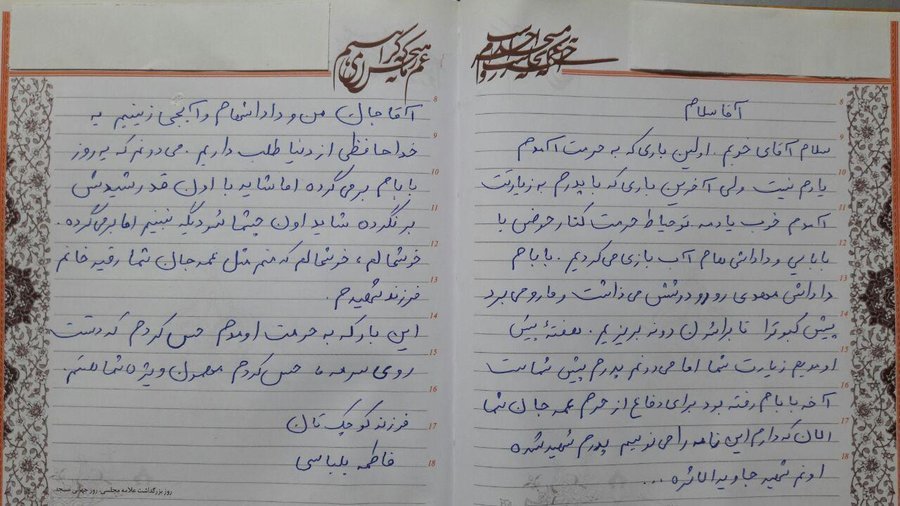 آقا سلام
سلام آقای خوبم. اولین باری که به حرمت آمدم
یادم نیست ولی آخرین باری که با پدرم به زیارتت
آمدم خوب یادمه. تو حیاط حرمت کنار حوضی با
بابایی و داداشی هام آب بازی می کردیم. بابام
داداش مهدی رو رو دوشش می ذاشت و ما رو می برد
پیش کبوترا تا براشون دونه بریزیم. هفتهٔ پیش
اومدیم زیارت شما اما می دونم پدرم پیش شماست
آخه بابام رفته بود برای دفاع از حرم عمه جان شما
الان که دارم این نامه را می نویسم پدرم شهید شده
اونم شهید جاوید الاثره ...
آقا جان من و داداشهام و آبجی زینبم یه
خداحافظی از دنیا طلب داریم. می دونم که یه روز
بابام برمی گرده اما شاید با اون قد رشیدش
برنگرده شاید اون چشماشو دیگه نبینم اما برمی گرده.
خوشحالم، خوشحالم که منم مثل عمه جان شما رقیه خانم
فرزند شهیدم.
این بار که به حرمت اومدم حس کردم که دست
روی سرمه حس کردم مهمون ویژه شما هستم.
فرزند کوچک تان
فاطمه بلباسی
8
9
10
11
12
13
14
15
16
17
18
8
9
10
11
12
13
14
15
16
17
18
روز بزرگداشت علامه مجلسی، روز جهانی مسجد